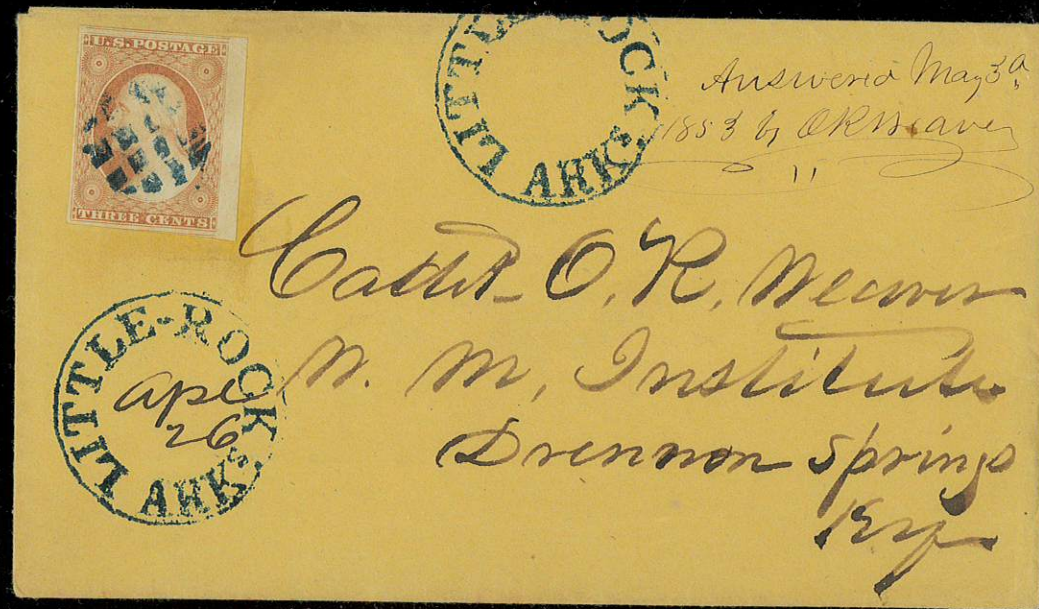 U.S. POSTAGE
THREE CENTS
LITTLE-ROCK ARKS
Answered May 3d
1853 by O R Weaver
Cadet O. R. Weaver
W. M. Institute
Drennon Springs
Ky
LITTLE-ROCK ARKS
Apl
26